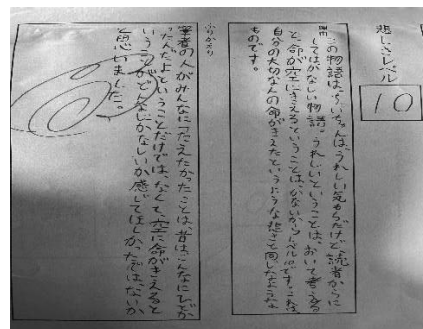 悲しさレベル
10
理由
この物語は、ちいちゃんは、うれしい気もちだけど、読者からに
してはかなしい物語。うれしいということは、おいて考える
と、命が空にきえるということは、かないからレベル10です。これは
自分の大切な人の命がきえたというような悲さと同じなような
ものです。
ふりかえり
筆者の人がみんなにつたえたかったことは、昔はこんなにひどか
ったんだよということだけでは、なくて、空に命がきえると
いうことがどんなにかなしいか感じてほしかたではないか
と思いました。